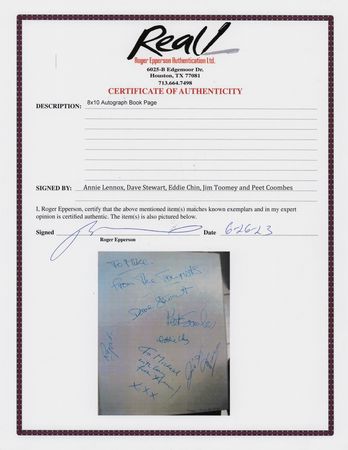 Real!
Roger Epperson Authentication Ltd.
6025-B Edgemoor Dr.
Houston, TX 77081
713.664.7498
CERTIFICATE OF AUTHENTICITY
DESCRIPTION: 8x10 Autograph Book Page
SIGNED BY: Annie Lennox, Dave Stewart, Eddie Chin, Jim Toomey and Peet Coombes
I, Roger Epperson, certify that the above mentioned item(s) matches known exemplars and in my expert
opinion is certified authentic. The item(s) is also pictured below.
Signed Date 6-26-23
Roger Epperson
To Mike
From The Tourists
Dave Stewart
Peet Coombes
Eddie Chin
To Michael
with love
from
X X X